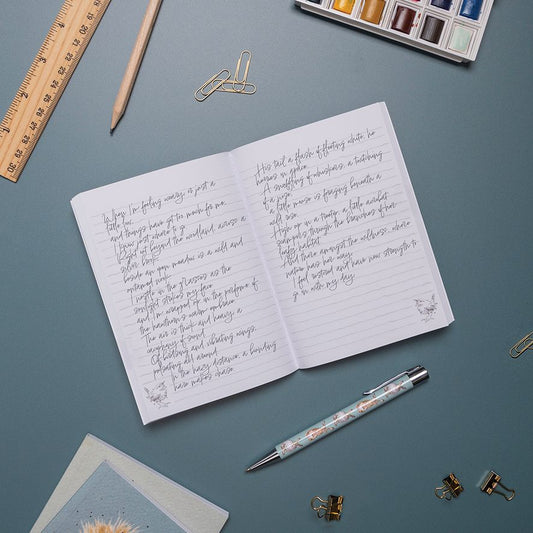 When I'm feeling weary, or just a
little low,
and things have got too much for me,
I know just where to go.
Right out beyond the woodland, across a
silver brook,
beside an open meadow is a wild and
untamed nook.
I nestle in the grasses as the
sunlight strokes my face
and I'm wrapped up in the perfume of
the hawthorn's warm embrace.
The air is thick and heavy, a
cacophony of sound
Of birdsong and vibrating wings,
pulsating all around.
In the hazy distance, a bounding
hare makes chase.
His tail a flash of floating white, he
hops in space.
A snuffling of whiskers, a twitching
of a nose,
a little mouse is foraging beneath a
wild rose.
High up in a treetop, a little acrobat
scampers through the branches of her
lofty habitat.
And there amongst the wildness, where
nature has her way,
I feel instead and have new strength to
go on with my day.
29
30